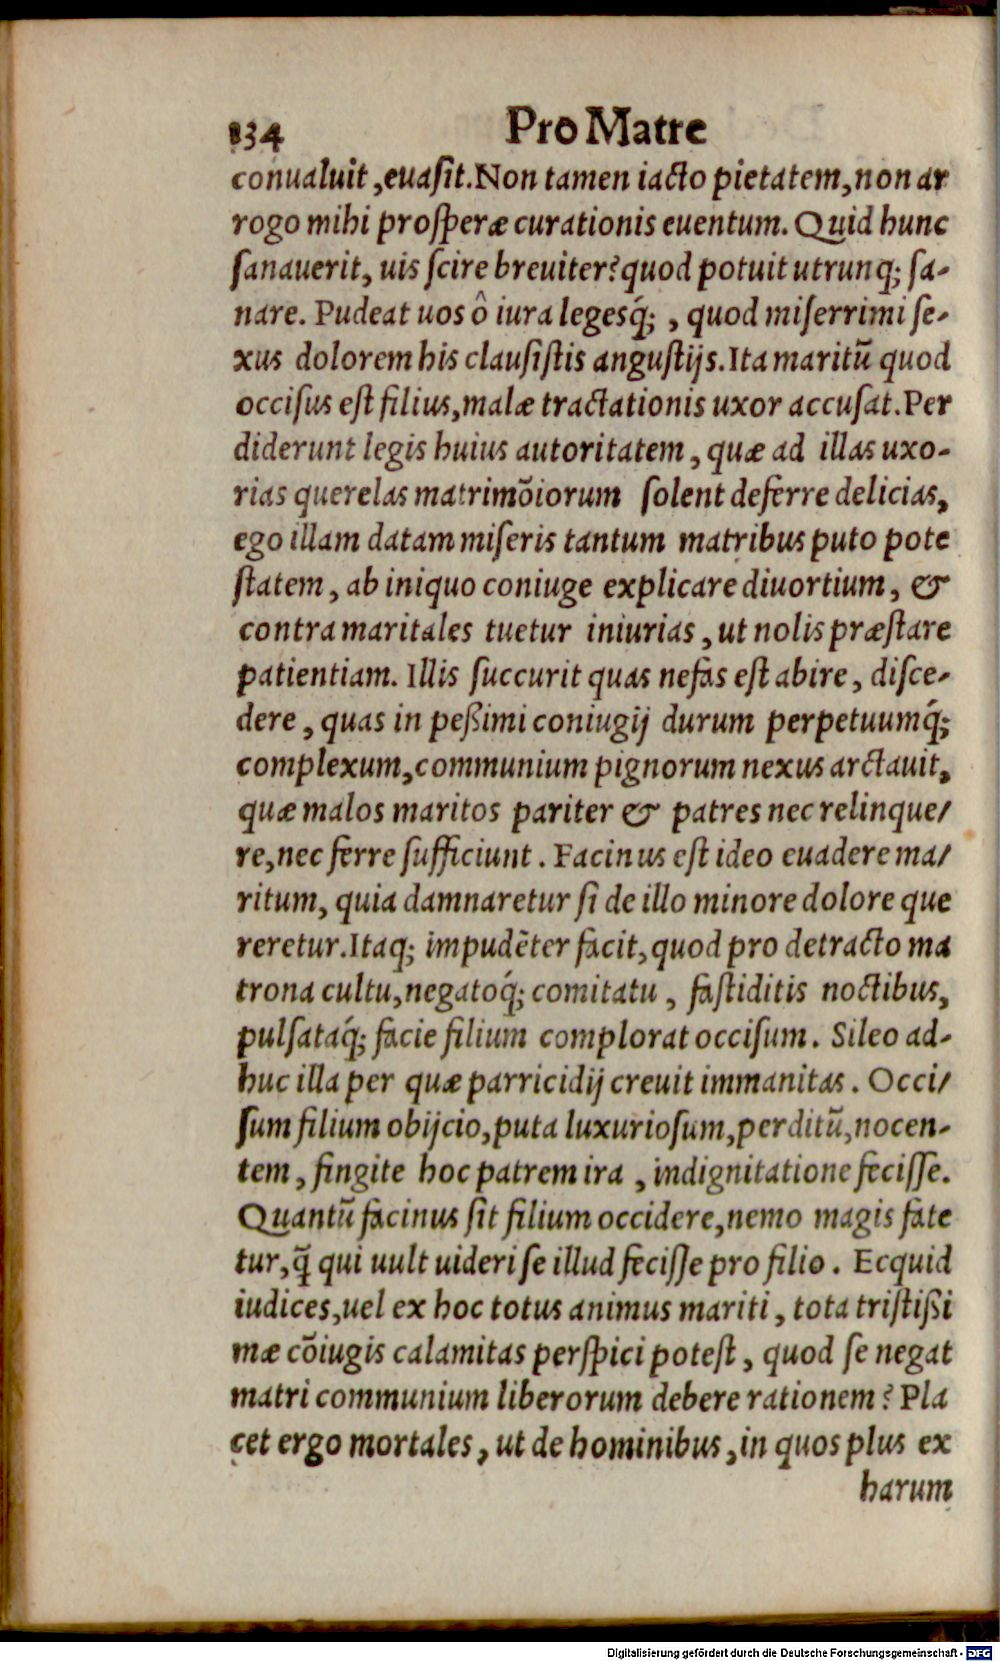 134 Pro Matre
conualuit, euaſit. Non tamen iacto pietatem, non ar
rogo mihi proſperæ curationis euentum. Quid hunc
ſanauerit, uis ſcire breuiter? quod potuit utrunq; ſa-
nare. Pudeat uos ô iura legesq́;, quod miſerrimi ſe-
xus dolorem his clauſiſtis anguſtijs. Ita maritū quod
occiſus eſt filius, malæ tractationis uxor accuſat. Per
diderunt legis huius autoritatem, quæ ad illas uxo-
rias querelas matrimōiorum ſolent deferre delicias,
ego illam datam miſeris tantum matribus puto pote
ſtatem, ab iniquo coniuge explicare diuortium, &
contra maritales tuetur iniurias, ut nolis præſtare
patientiam. Illis ſuccurit quas nefas eſt abire, diſce-
dere, quas in peßimi coniugij durum perpetuumq́;
complexum, communium pignorum nexus arctauit,
quæ malos maritos pariter & patres nec relinque/
re, nec ferre ſufficiunt. Facinus eſt ideo euadere ma/
ritum, quia damnaretur ſi de illo minore dolore que
reretur. Itaq; impudēter facit, quod pro detracto ma
trona cultu, negatoq́; comitatu, faſtiditis noctibus,
pulſataq́; facie filium complorat occiſum. Sileo ad-
huc illa per quæ parricidij creuit immanitas. Occi/
ſum filium obijcio, puta luxurioſum, perditū, nocen-
tem, fingite hoc patrem ira, indignitatione feciſſe.
Quantū facinus ſit filium occidere, nemo magis fate
tur, q̄ qui uult uideri ſe illud feciſſe pro filio. Ecquid
iudices, uel ex hoc totus animus mariti, tota triſtißi
mæ cōiugis calamitas perſpici poteſt, quod ſe negat
matri communium liberorum debere rationem? Pla
cet ergo mortales, ut de hominibus, in quos plus ex
harum
Digitalisierung gefördert durch die Deutsche Forschungsgemeinschaft - DFG